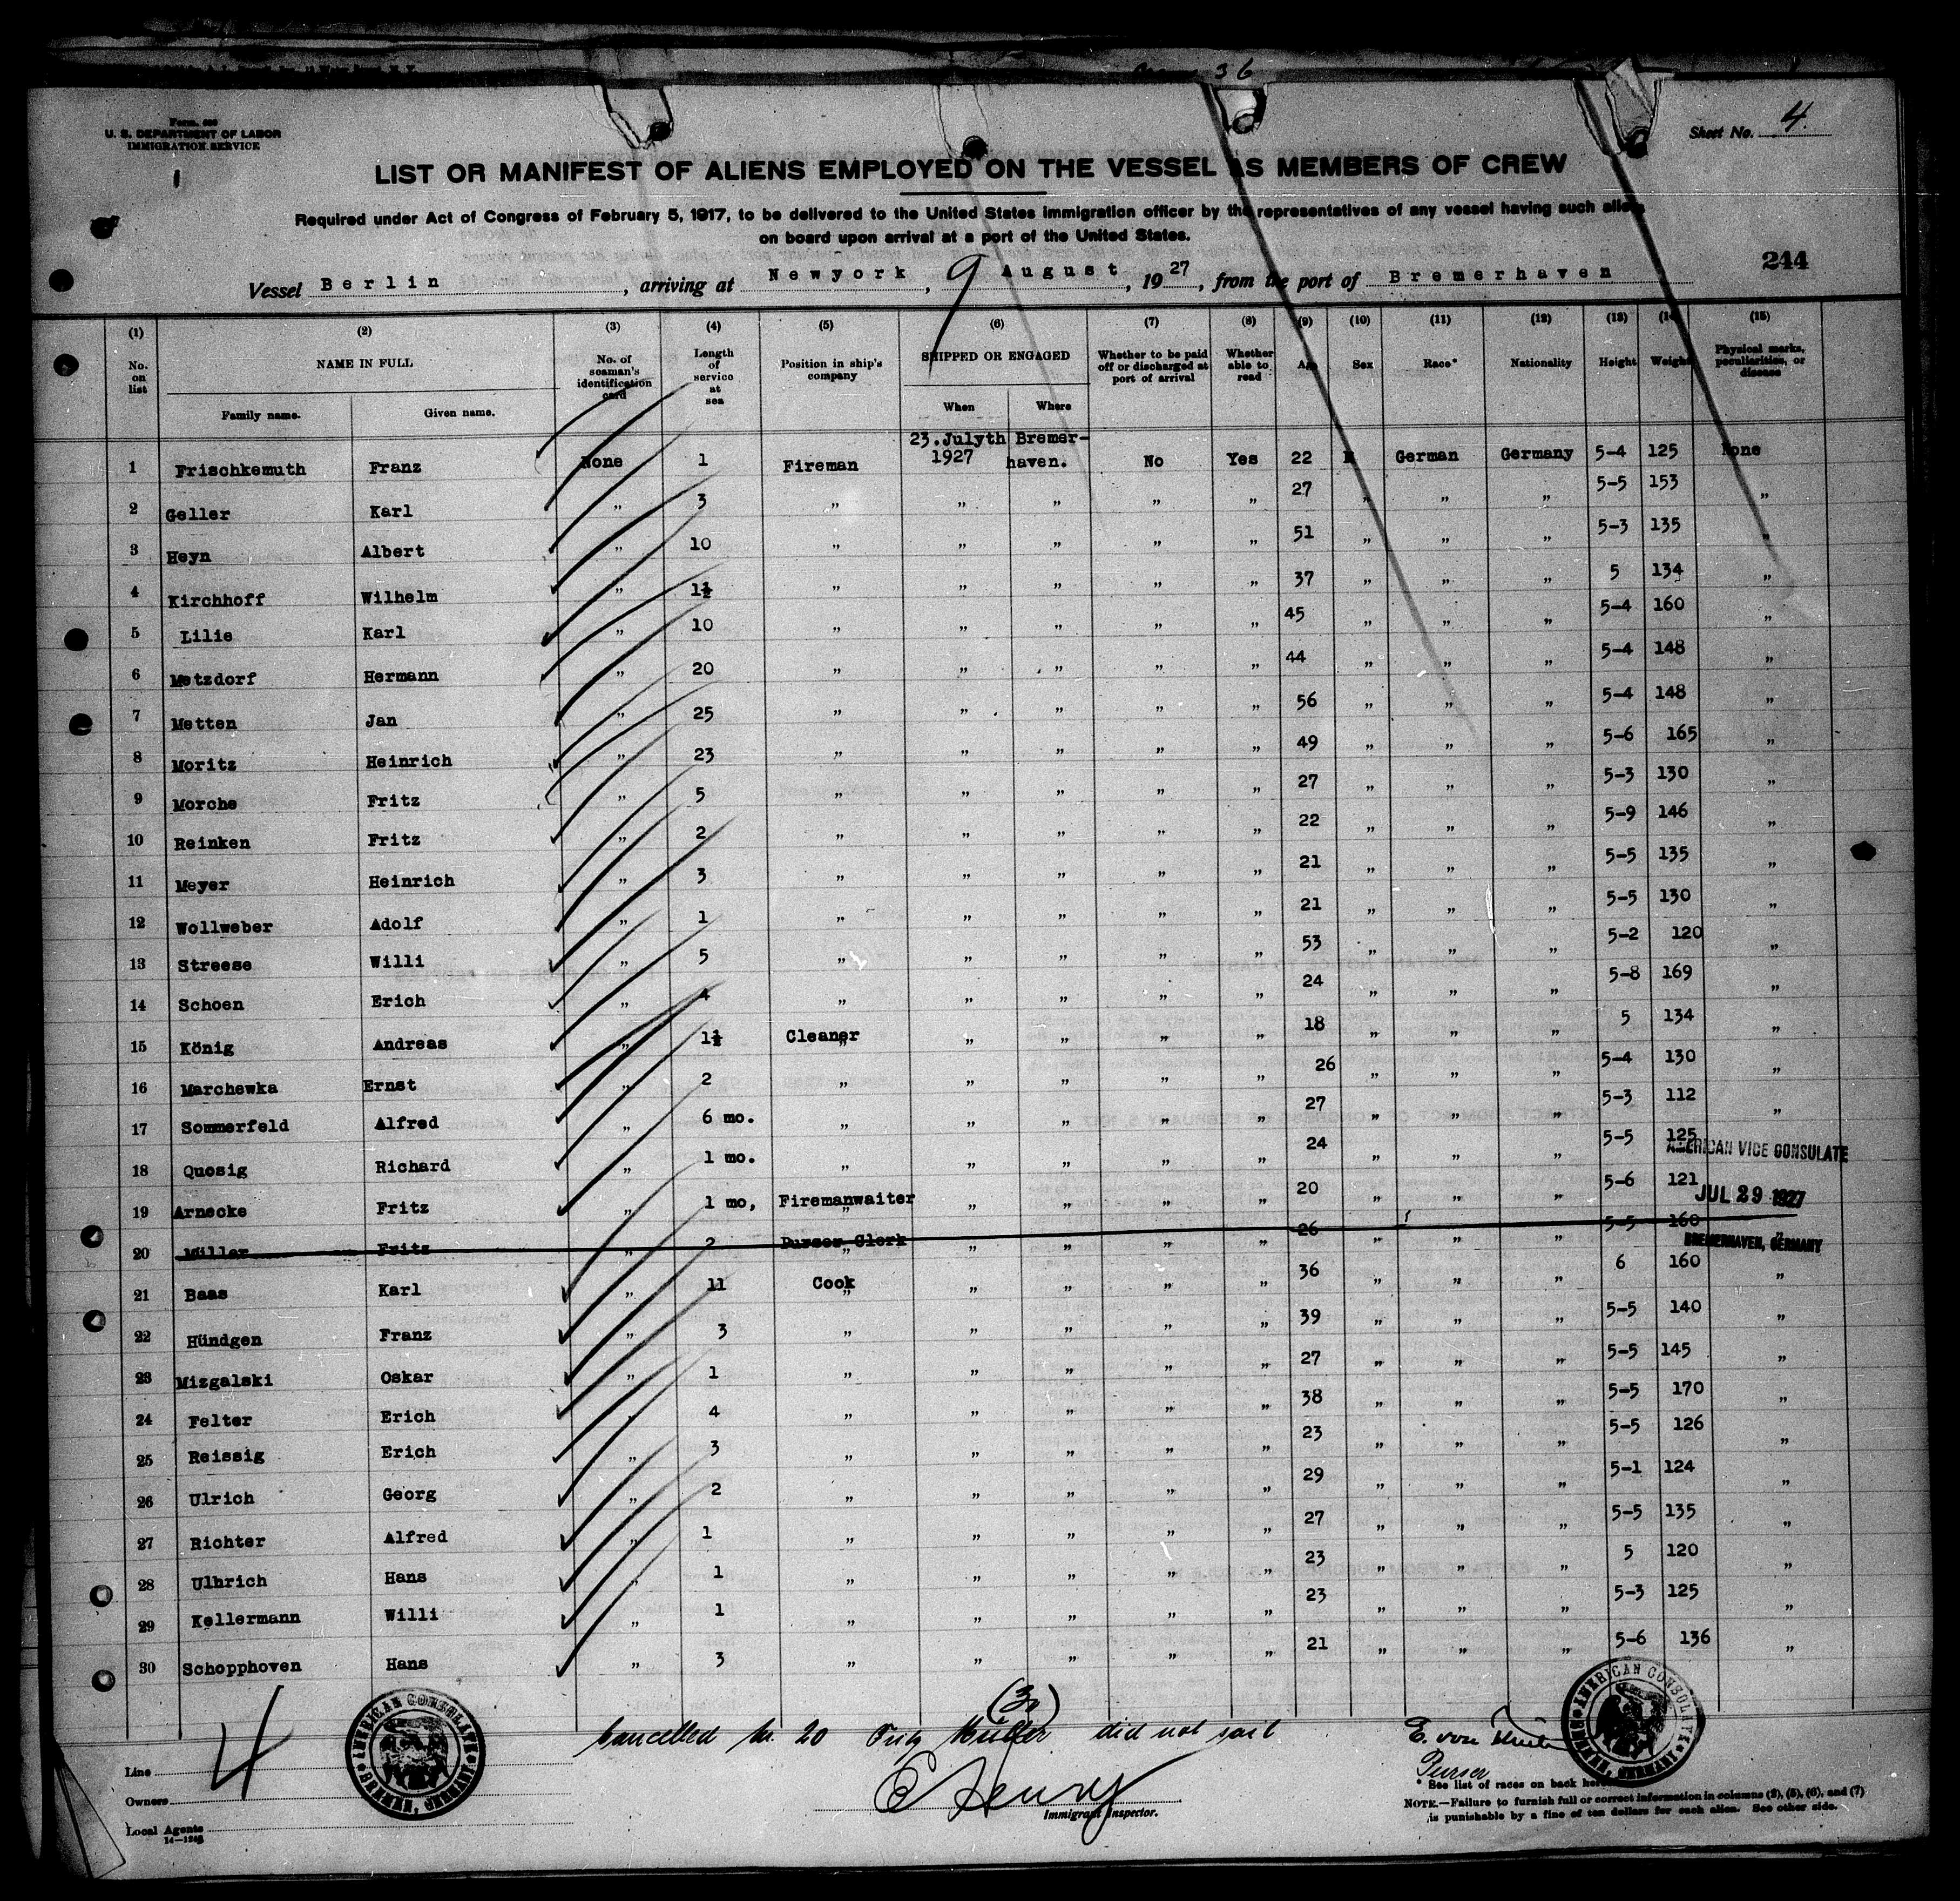 36
Form. 680
U. S. DEPARTMENT OF LABOR
IMMIGRATION SERVICE
Sheet No. 4
LIST OR MANIFEST OF ALIENS EMPLOYED ON THE VESSEL AS MEMBERS OF CREW
Required under Act of Congress of February 5, 1917, to be delivered to the United States immigration officer by the representatives of any vessel having such aliens
on board upon arrival at a port of the United States.
244
Vessel Berlin, arriving at Newyork, 9 August, 1927, from the port of Bremerhaven
(1) (2) (3) (4) (5) (6) (7) (8) (9) (10) (11) (12) (13) (14) (15)
No. on list NAME IN FULL Family name. Given name. No. of seaman's identification card Length of service at sea Position in ship's company SHIPPED OR ENGAGED When Where Whether to be paid off or discharged at port of arrival Whether able to read Age Sex Race* Nationality Height Weight Physical marks, peculiarities, or disease
1 Frischkemuth Franz None 1 Fireman 23.Julyth 1927 Bremerhaven. No Yes 22 M German Germany 5-4 125 None
2 Geller Karl „ 3 „ „ „ „ „ 27 „ „ „ 5-5 153 „
3 Heyn Albert „ 10 „ „ „ „ „ 51 „ „ „ 5-3 135 „
4 Kirchhoff Wilhelm „ 1½ „ „ „ „ „ 37 „ „ „ 5 134 „
5 Lilie Karl „ 10 „ „ „ „ „ 45 „ „ „ 5-4 160 „
6 Metzdorf Hermann „ 20 „ „ „ „ „ 44 „ „ „ 5-4 148 „
7 Metten Jan „ 25 „ „ „ „ „ 56 „ „ „ 5-4 148 „
8 Moritz Heinrich „ 23 „ „ „ „ „ 49 „ „ „ 5-6 165 „
9 Morche Fritz „ 5 „ „ „ „ „ 27 „ „ „ 5-3 130 „
10 Reinken Fritz „ 2 „ „ „ „ „ 22 „ „ „ 5-9 146 „
11 Meyer Heinrich „ 3 „ „ „ „ „ 21 „ „ „ 5-5 135 „
12 Wollweber Adolf „ 1 „ „ „ „ „ 21 „ „ „ 5-5 130 „
13 Streese Willi „ 5 „ „ „ „ „ 53 „ „ „ 5-2 120 „
14 Schoen Erich „ 4 „ „ „ „ „ 24 „ „ „ 5-8 169 „
15 König Andreas „ 1½ Cleaner „ „ „ „ 18 „ „ „ 5 134 „
16 Marchewka Ernst „ 2 „ „ „ „ „ 26 „ „ „ 5-4 130 „
17 Sommerfeld Alfred „ 6 mo. „ „ „ „ „ 27 „ „ „ 5-3 112 „
18 Quosig Richard „ 1 mo. „ „ „ „ „ 24 „ „ „ 5-5 125
AMERICAN VICE CONSULATE
19 Arnecke Fritz „ 1 mo, Firemanwaiter „ „ „ „ 20 „ „ „ 5-6 121
JUL 29 1927
20 Müller Fritz „ 2 Purser Clerk „ „ „ „ 26 „ „ „ 5-5 160 „
BREMERHAVEN, GERMANY
21 Baas Karl „ 11 Cook „ „ „ „ 36 „ „ „ 6 160 „
22 Hündgen Franz „ 3 „ „ „ „ „ 39 „ „ „ 5-5 140 „
23 Mizgalski Oskar „ 1 „ „ „ „ „ 27 „ „ „ 5-5 145 „
24 Felter Erich „ 4 „ „ „ „ „ 38 „ „ „ 5-5 170 „
25 Reissig Erich „ 3 „ „ „ „ „ 23 „ „ „ 5-5 126 „
26 Ulrich Georg „ 2 „ „ „ „ „ 29 „ „ „ 5-1 124 „
27 Richter Alfred „ 1 „ „ „ „ „ 27 „ „ „ 5-5 135 „
28 Ulbrich Hans „ 1 „ „ „ „ „ 23 „ „ „ 5 120 „
29 Kellermann Willi „ 1 „ „ „ „ „ 23 „ „ „ 5-3 125 „
30 Schopphoven Hans „ 3 „ „ „ „ „ 21 „ „ „ 5-6 136 „
(30)
Cancelled Nr. 20 Fritz Müller did not sail
E. von
Purser
4
AMERICAN CONSULATE BREMEN, GERMANY
AMERICAN CONSULATE BREMEN, GERMANY
Line
Owners
Local Agents
14-1242
C Henry
Immigrant Inspector.
* See list of races on back hereof.
NOTE.—Failure to furnish full or correct information in columns (2), (5), (6), and (7)
is punishable by a fine of ten dollars for each alien. See other side.